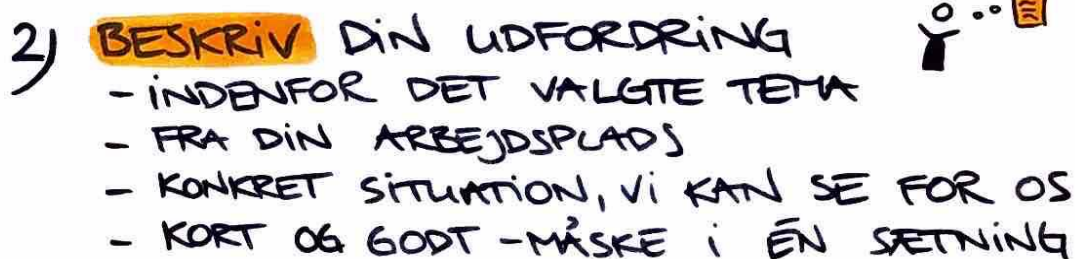 2) BESKRIV DIN UDFORDRING
- INDENFOR DET VALGTE TEMA
- FRA DIN ARBEJDSPLADS
- KONKRET SITUATION, VI KAN SE FOR OS
- KORT OG GODT - MÅSKE I ÉN SÆTNING